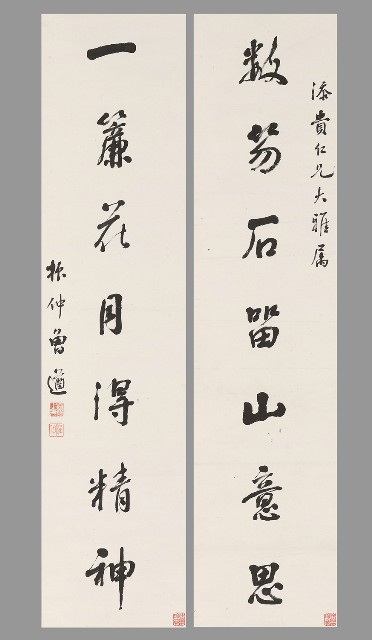 添貴仁兄大雅属
数笏石留山意思
一簾花月得精神
振仲曾遒